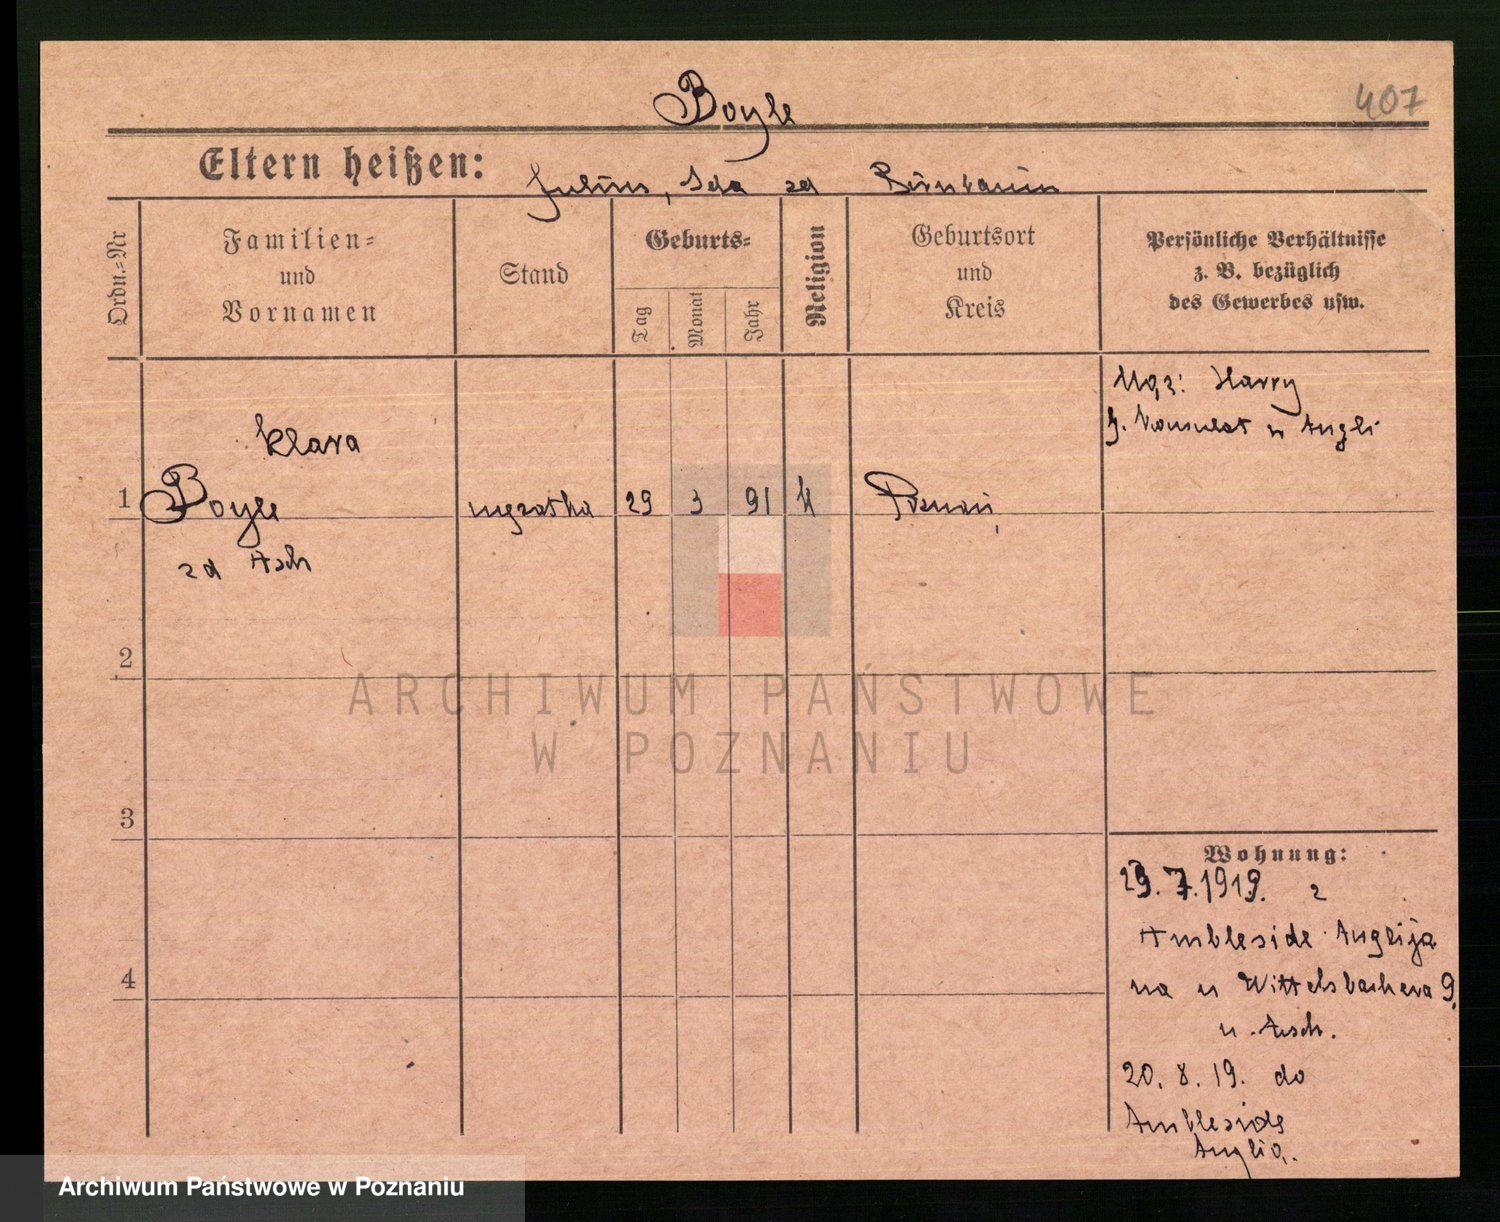 Boyle
407
Eltern heißen: Julius, Ida zd Birnbaum
Ordn.=Nr
Familien=
und
Vornamen
Stand
Geburts=
Tag
Monat
Jahr
Religion
Geburtsort
und
Kreis
Persönliche Verhältnisse
z. B. bezüglich
des Gewerbes usw.
Mąż: Harry
Konsulat w Angli
Klara
1 Boyle mężatka 29 3 91 Poznań
zd Asch
2
3
4
Wohnung:
23. 7. 1919. z
Ambleside Anglija
na u Wittelsbachera 9,
u Asch.
20. 8. 19. do
Ambleside
Anglia.
ARCHIWUM PAŃSTWOWE
W POZNANIU
Archiwum Państwowe w Poznaniu